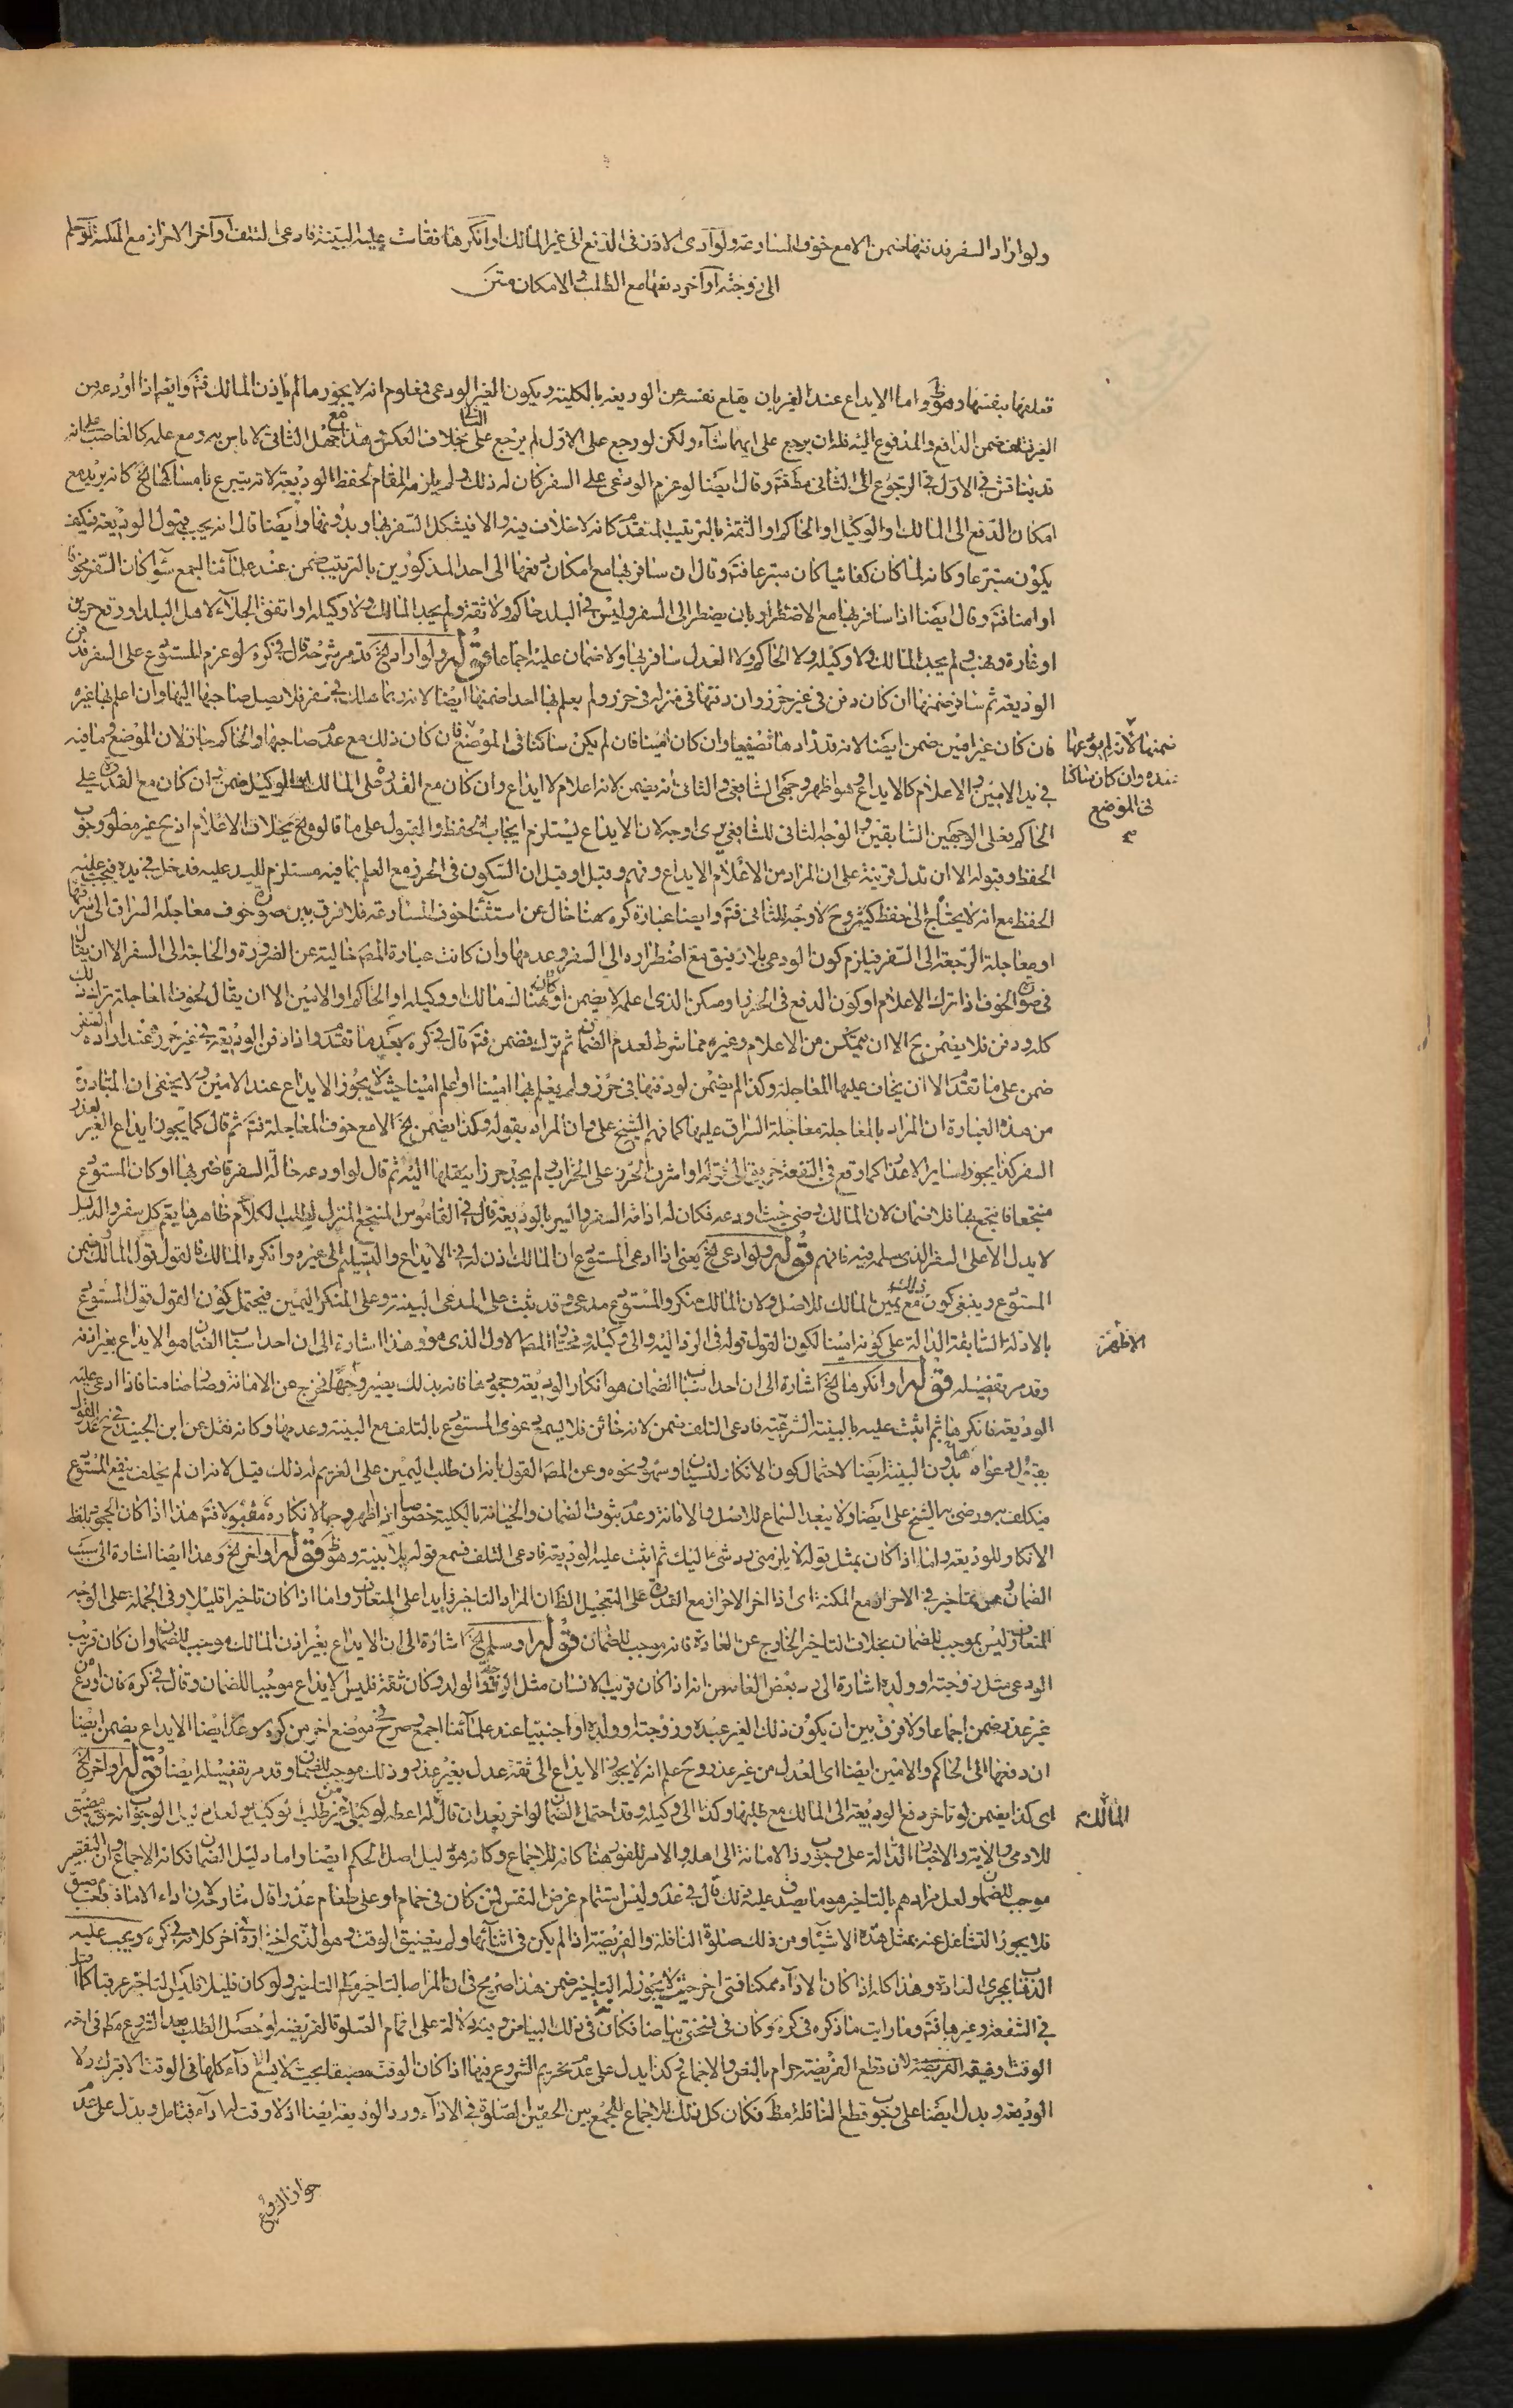 ولو اراد السفر فدفنها ضمن الا مع خوف المسارعة ولو ادعى الاذن فى الدفع الى غير المالك او انكرها فقامت عليه البينة فادعى التلف او اخر الاحراز مع المكنة او سلم
الى زوجته او اخر دفعها مع الطلب والامكان متن
تعلقها بنفسها وهو ظ واما الايداع عند الغير بان يقلع نفسه عن الوديعة بالكلية ويكون الغير الودعى فمعلوم انه لا يجوز ما لم ياذن المالك فتم وايضا اذا اودعه من
الغير فتلف ضمن الدافع والمدفوع اليه فله ان يرجع على ايهما شاء ولكن لو رجع على الاول لم يرجع على الثانى بخلاف العكس هذا مع جهل الثانى لا باس به ومع علمه كالغاصب على انه
قد يناقش فى الاول فى الرجوع الى الثانى مطلقا فتم وقال ايضا لو عزم الودعى على السفر كان له ذلك ولم يلزمه المقام لحفظ الوديعة لانه يتبرع بامساكها الخ كانه يريد مع
امكان الدفع الى المالك او الوكيل او الحاكم او الثقة بالترتيب المتقدم كانه لا خلاف فيه والا فيشكل السفر بها وبدونها وايضا قال انه يجب قبول الوديعة فكيف
يكون متبرعا وكانه لما كان كفائيا كان متبرعا فتم وقال ان سافر بها مع امكان دفعها الى احد المذكورين بالترتيب ضمن عند علمائنا اجمع سواء كان السفر مخوفا
او امنا فتم وقال ايضا اذا سافر بها مع الاضطرار بان يضطر الى السفر وليس فى البلد حاكم ولا ثقة ولم يجد المالك ولا وكيله او اتفق الجلاء لاهل البلد او وقع حريق
او غارة ونهب ولم يجد المالك ولا وكيله ولا الحاكم ولا العدل سافر بها ولا ضمان عليه اجماعا قوله ولو اراد الخ قد مر شرحه قال فى كره لو عزم المستودع على السفر فدفن
الوديعة ثم سافر ضمنها ان كان دفن فى غير حرز وان دفنها فى منزله فى حرز ولم يعلم بها احدا ضمنها ايضا لانه ربما هلك فى سفره فلا يصل صاحبها اليها وان اعلم بها غيره
فان كان غير امين ضمن ايضا لانه قد زادها تضييعا وان كان امينا فان لم يكن ساكنا فى الموضع فان كان ذلك مع عدم صاحبها والحاكم جاز لان الموضع وما فيه
ضمنها لانه لم يودعها
عنده وان كان ساكنا
فى الموضع
صح
فى يد الامين والاعلام كالايداع وهو اظهر وجهى الشافعى والثانى انه يضمن لانه اعلام لا ايداع وان كان مع القدرة على المالك او الوكيل ضمن وان كان مع القدرة على
الحاكم فعلى الوجهين السابقين والوجه الثانى للشافعى يرى اوجه لان الايداع يستلزم ايجاب الحفظ والقبول على ما قالوه فح بخلاف الاعلام اذ ح غير مط وجوب
الحفظ وقبوله الا ان تدل قرينة على ان المراد من الاعلام الايداع وفهم وقبل او قبل ان السكون فى الحرز مع العلم بما فيه مستلزم لليد عليه فدخل فى يده فيجب عليه
الحفظ مع انه لا يحتاج الى حفظ كثير وح لا وجه للثانى فتم وايضا عبارة كره هنا خال عن استثناء خوف المسارعة فلا فرق بين صورة خوف معاجلة السراق الى سرقتها
او معاجلة الرجعة الى السفر فيلزم كون الودعى بلا رفيق مع اضطراره الى السفر وعدمها وان كانت عبارة المصر خالية عن الضرورة والحاجة الى السفر الا ان يقال
فى صورة الخوف اذا ترك الاعلام او كون الدفع فى الحرز او مسكن الذى اعلمه لا يضمن او كان هناك مالك او وكيله او الحاكم او الامين الا ان يقال لخوف المعاجلة ترك ذلك
كله ودفن فلا يضمن ح الا ان يتمكن من الاعلام وغيره مما شرط لعدم الضمان ثم ترك فضمن فتم قال فى كره بعد ما تقدم واذا دفن الوديعة فى غير حرز عند ارادة السفر
ضمن على ما تقدم الا ان يخاف عليها المعاجلة وكذا لم يضمن لو دفنها فى حرز ولم يعلم بها امينا او اعلم امينا حيث لا يجوز الايداع عند الامين ولا يخفى ان المتبادر
من هذه العبارة ان المراد بالمعاجلة معاجلة السراق عليها كما فهم الشيخ على وان المراد بقوله وكذا يضمن الخ الا مع خوف المعاجلة فتم ثم قال كما يجوز ايداع الغير لعذر
السفر كذا يجوز لساير الاعذار كما وقع فى البقعة حريق الى قوله او اشرف الحرز على الخراب ولم يجد حرزا ينقلها اليه ثم قال لو اودعه حالة السفر فاضر بها او كان المستودع
منتجعا فانتجع بها فلا ضمان لان المالك رضى حيث اودعه فكان له اذا قه السفر والسير بالوديعة قال فى القاموس المنتجع المنزل لطلب الكلاء ظاهر هنا يعم كل سفر والدليل
لا يدل الا على السفر الذى سلمه فيه فافهم قوله ولو ادعى الخ يعنى اذا ادعى المستودع ان المالك اذن له فى الايداع والتسليم الى غيره وانكره المالك فالقول قول المالك وضمن
المستودع وينبغى كون ذلك مع يمين المالك للاصل ولان المالك منكر والمستودع مدعى وقد ثبت على المدعى البينة وعلى المنكر اليمين فيحتمل كون القول قول المستودع
بالادلة السابقة الدالة على كونه امينا لكون القول قوله فى الرد اليه والى وكيله وفتحتا المصر الاول الذى موفه هذا اشارة الى ان احد اسباب الضمان هو الايداع بغير اذنه
الاظهر
وقد مر تفصيله قوله او انكرها الخ اشارة الى ان احد اسباب الضمان هو انكار الوديعة وجحودها فانه بذلك يصير وجها لخرج عن الامانة وصار ضامنا فاذا ادعى عليه
الوديعة فانكرها ثم اثبت عليه بالبينة الشرعية فادعى التلف ضمن لانه خائن فلا يسمع دعوى المستودع بالتلف مع البينة وعدمها وكانه نقل عن ابن الجنيد فى ح عد القول
بقبول دعواه بدون البينة ايضا لاحتمال كون الانكار لنسيان وسهو ونحوه وعن المصر القول بانه ان طلب اليمين على الغريم له ذلك قيل لانه ان لم يحلف ينفع المستودع
فيكلف به ورضى به الشيخ على ايضا ولا يبعد السماع للاصل والامانة وعدم ثبوت الضمان والخيانة بالكلية خصوصا اذا اظهر وجها لانكاره مقبولا فتم هذا اذا كان الجحود بلفظ
الانكار للوديعة واما اذا كان بمثل قوله لا يلزمنى رد شئ اليك ثم اثبت عليه الوديعة فادعى التلف فسمع قوله بلا بينة وهو ظ قوله او اخر الخ وهذا ايضا اشارة الى سبب
الضمان وهو من تاخير فى الاحراز مع المكنة اى اذا اخر الاحراز مع القدرة على التعجيل الظ ان المراد التاخير زايدا على المتعارف واما اذا كان تاخيرا قليلا وفى الجملة على الوجه
المتعارف ليس بموجب للضمان بخلاف التاخير الخارج عن العادة فانه موجب للضمان قوله او سلم الخ اشارة الى ان الايداع بغير اذن المالك موجب للضمان وان كان قريب
الودعى مثل زوجته او ولده اشارة الى رد بعض العامة من انه اذا كان قريب الانسان مثل الزوجة والولد وكان ثقة فليس الايداع موجبا للضمان وقال فى كره فان اودع من
غير عذر ضمن اجماعا ولا فرق بين ان يكون ذلك الغير عبده وزوجته او ولده او اجنبيا عند علمائنا اجمع وصرح فى موضع اخر من كره وعد ايضا الايداع يضمن ايضا
ان دفعها الى الحاكم والامين ايضا اى العدل من غير عذر وح علم انه لا يجوز الايداع الى ثقة عدل بغير عذر وذلك موجب للضمان وقد مر تفصيله ايضا قوله او اخر الخ
اى كذا يضمن لو تاخر دفع الوديعة الى المالك مع طلبها وكذا الى وكيله وقد احتمل الضمان لو اخر بعد ان قال له اعطه لوكيلى من غير طلب الوكيل ولعل دليل الوجوب انه حق مضيق
المالك
للادمى والاية والاخبار الدالة على وجوب رد الامانة الى اهلها والامر للفور هنا كانه للاجماع وكانه هو دليل اصل الحكم ايضا واما دليل الضمان فكانه الاجماع وان التقصير
موجب للضمان ولعل مرادهم بالتاخير هو ما يصدق عليه ذلك قال فى عد وليس استتمام غرض النفس لمن كان فى حمام او على طعام عذرا قال شارحه لان اداء الامانة واجب مضيق
فلا يجوز التشاغل عنه بمثل هذه الاشياء ومن ذلك صلوة النافلة والفريضة اذا لم يكن فى اثنائها ولم يضيق الوقت وهو الذى اختاره فى اخر كلامه فى كره ويجب عليه
الذهاب بمجرى العادة وهذا كله اذا كان الاداء ممكنا فمتى اخر حيث لا يجوز له التاخير ضمن هذا صريح فى ان المراد بالتاخير مطلق التاخير ولو كان قليلا فليس التاخير عرفيا كما
فى الشفعة وغيرها فتم وما رايت ما ذكره فى كره وكان فى نسختى بياضا فكان فى ذلك البياض وفيه دلالة على اتمام الصلوة الفريضة لو حصل الطلب بعد الشروع مطلقا فى اخر
الوقت وفيقه الفريضة لان قطع الفريضة حرام بالنص والاجماع وكذا يدل على عدم تحريم الشروع فيها اذا كان الوقت مضيقا بحيث لا يسع الاداء كلها فى الوقت الا بترك رد
الوديعة ويدل ايضا على وجوب قطع النافلة مطلقا فكان كل ذلك للاجماع للجمع بين الحقين الصلوة فى الاداء ورد الوديعة ايضا اذ لا وقت لها اداء فتامل ويدل على عدم
جواز الدفع